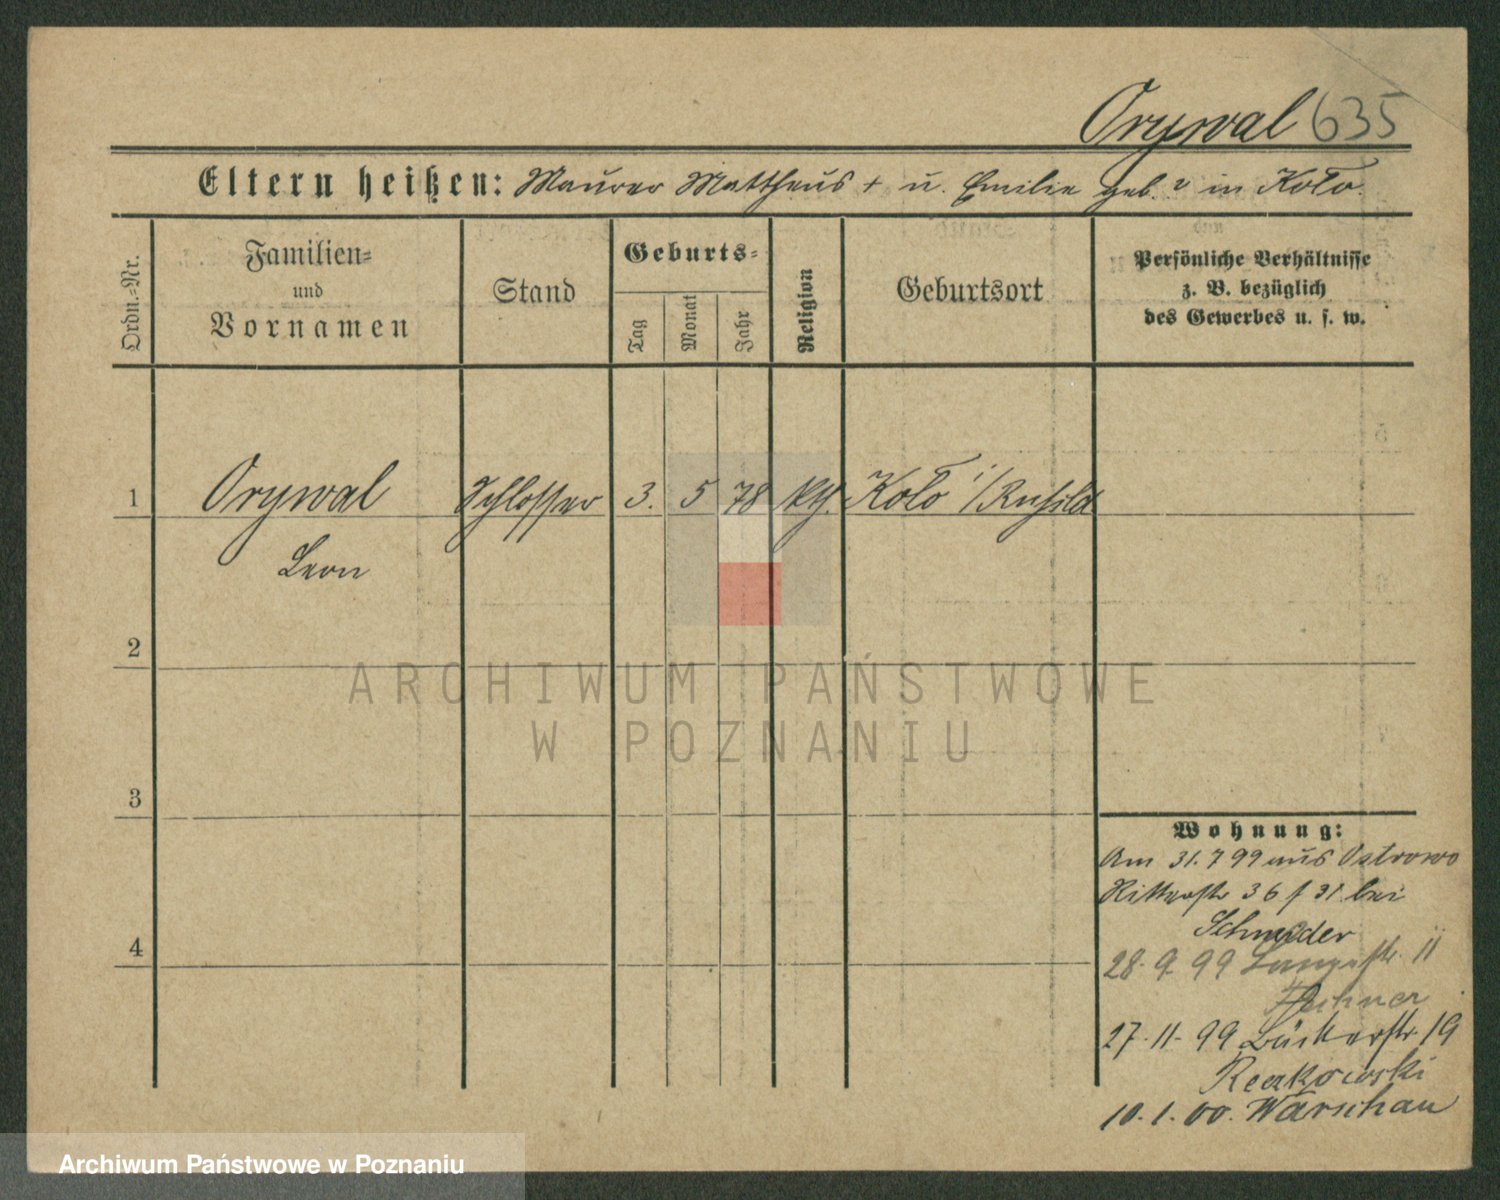 Orywal 635
Eltern heißen: Maurer Mattheus + u. Emilie geb. ? in Koło.
Ordn.-Nr.
Familien-
und
Vornamen
Stand
Geburts-
Tag
Monat
Jahr
Religion
Geburtsort
Persönliche Verhältnisse
z. B. bezüglich
des Gewerbes u. s. w.
1 Orywal Schlosser 3. 5 78 kth. Koło i/Rußld
Leon
2
ARCHIWUM PAŃSTWOWE
W POZNANIU
3
Wohnung:
Am 31.7 99 aus Ostrowo
Ritterstr 36 f 31 bei
Schneider
4
28. 9. 99 Langestr. 11
27. 11. 99 Bäckerstr. 19
Reczkowski
10. 1. 00. Warschau
Archiwum Państwowe w Poznaniu